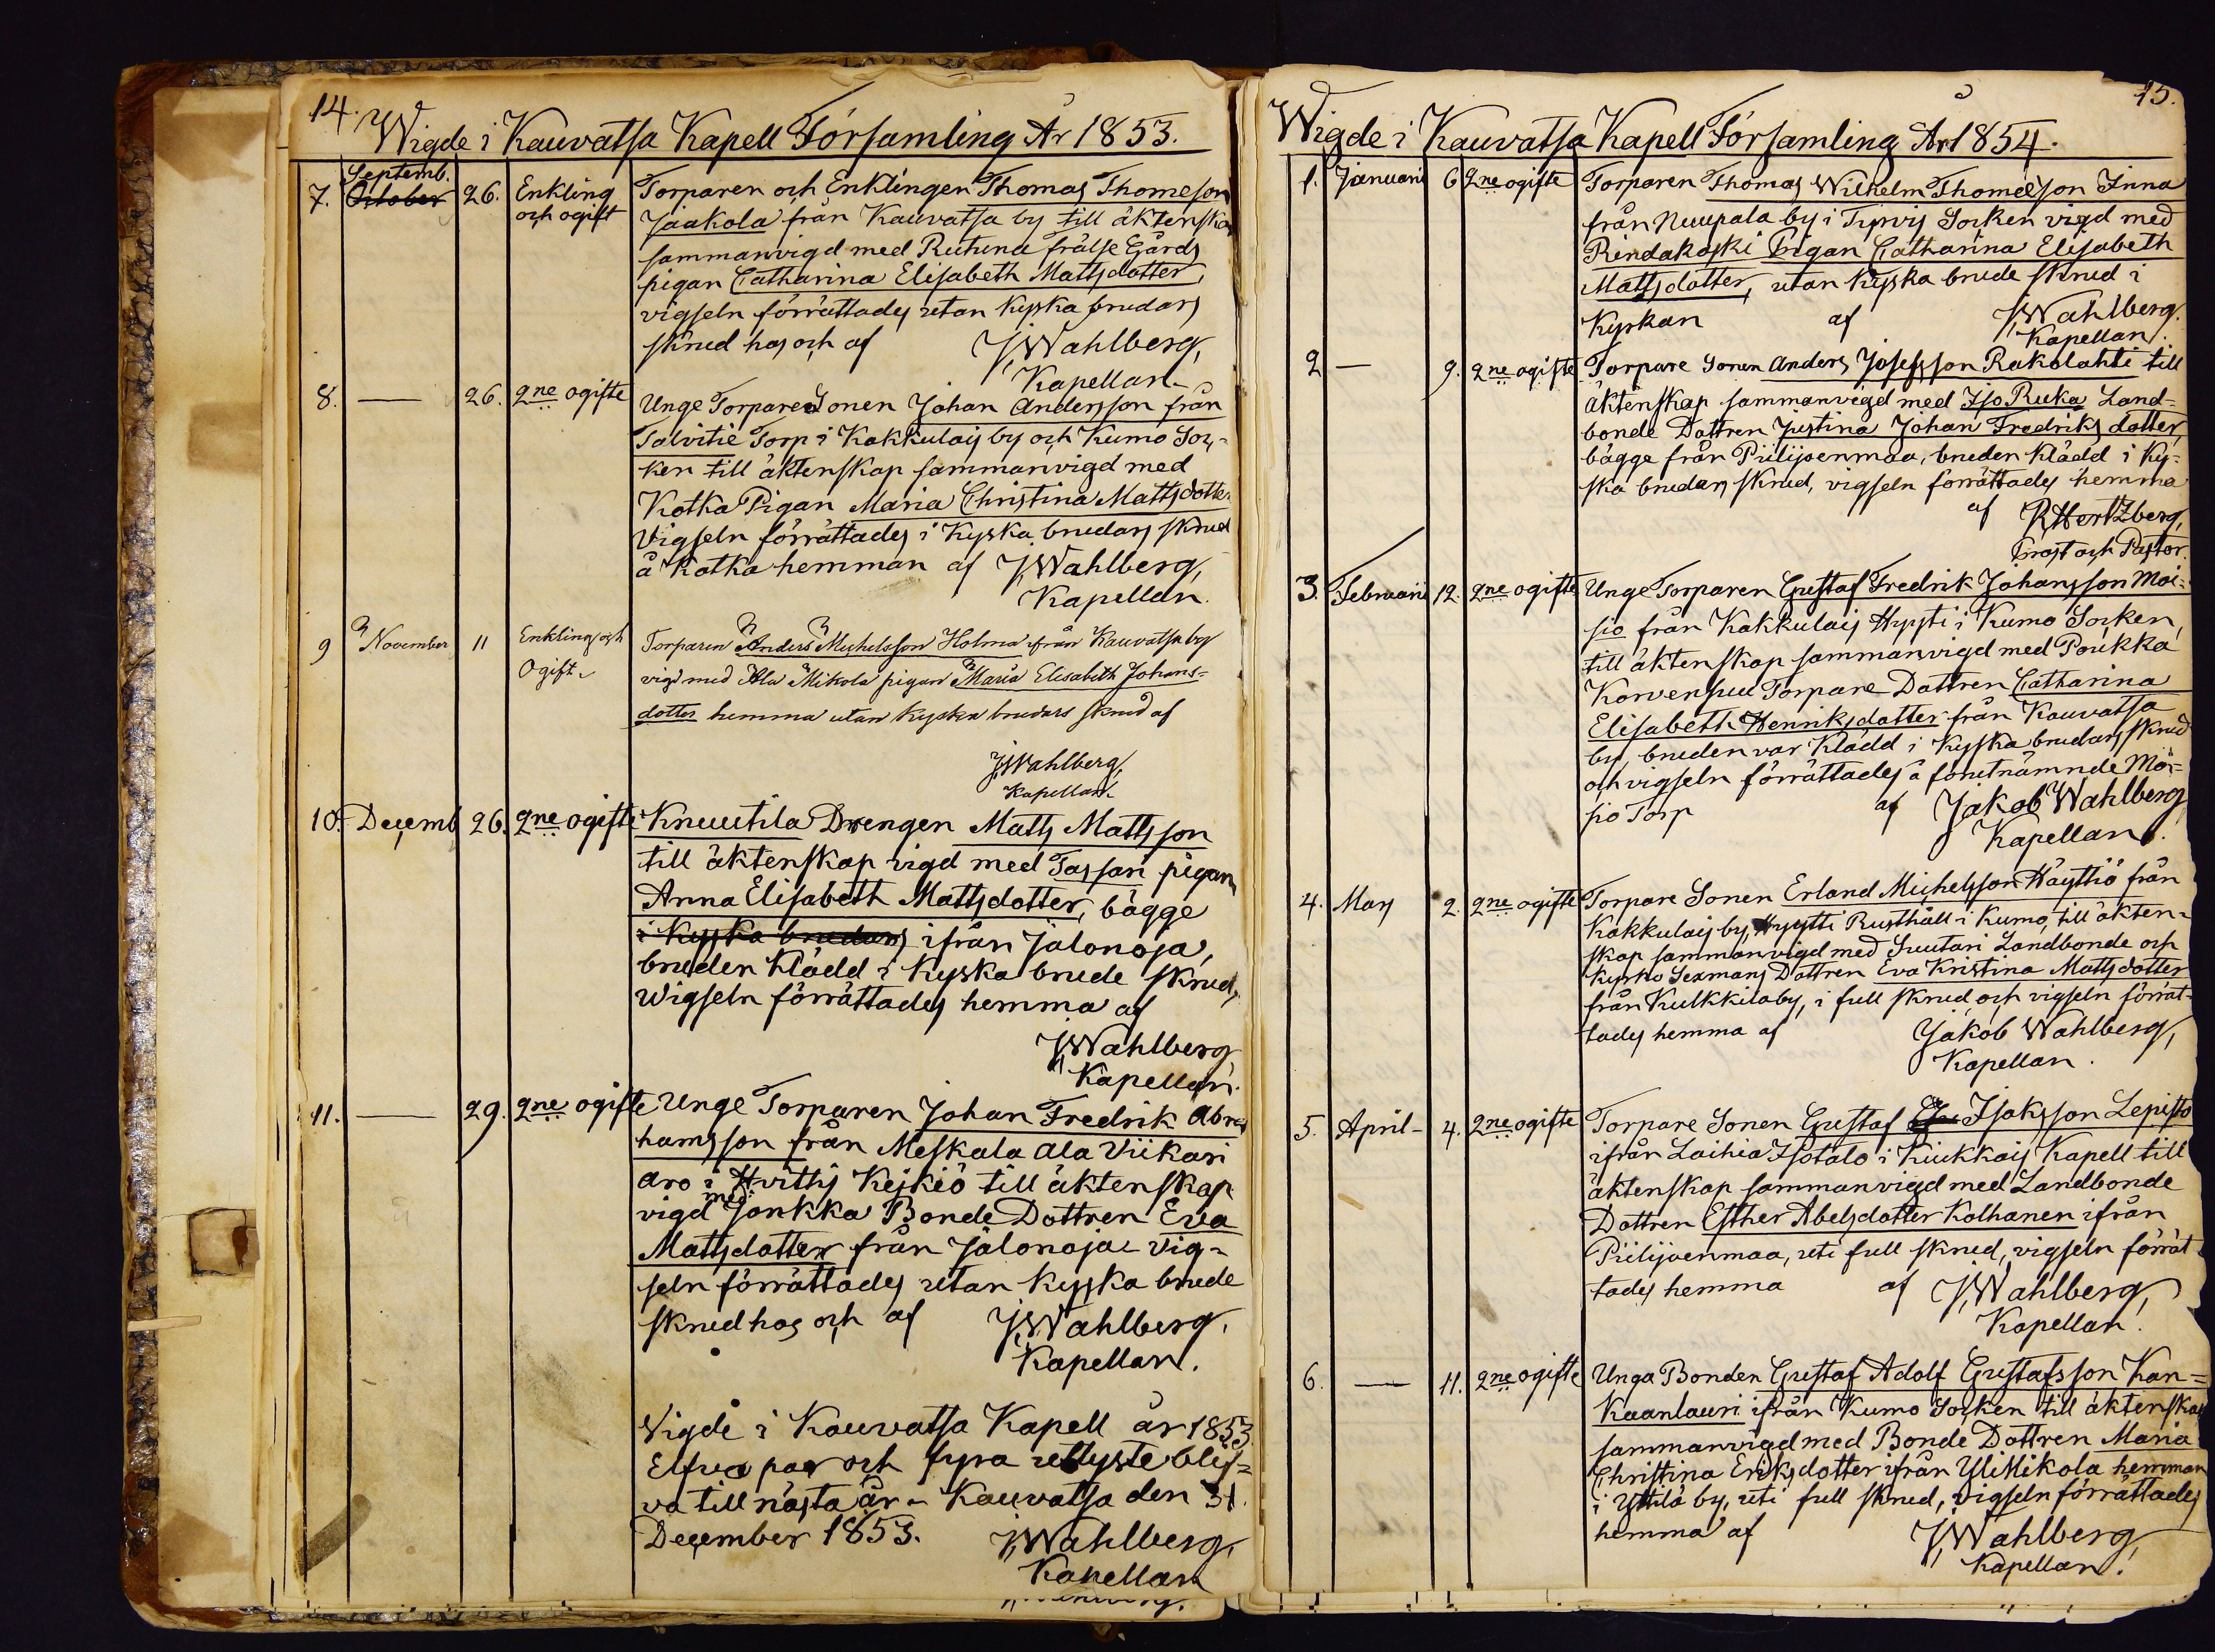 14.
Wigde i Kauvatsa Kapell Församling År 1853.
Septemb.
7. October 26. Enkling och ogift
Torparen och Enklingen Thomas Thomesson
Jaakola från Kauvatsa by till äktenskap
sammanvigd med Rutuna frälse Gårds
pigan Catharina Elisabeth Mattsdotter,
vigseln förrättades utan kyska brudars
skrud hos och af J. Wahlberg,
Kapellan
8. — 26. 2ne ogifte
Unge Torpare Sonen Johan Andersson från
Talvitie Torp i Kakkulais by och Kumo Soc-
ken till äktenskap sammanvigd med
Kotka Pigan Maria Christina Mattsdotter
Vigseln förrättades i Kyska brudars skrud
å Kotka hemman af J. Wahlberg,
Kapellan.
9 November 11 Enkling och Ogift
Torparen Anders Michelsson Holma från Kauvatsa by
vigd med Ala Mikola pigan Maria Elisabeth Johans-
dotter hemma utan kyska brudars skrud af
J. Wahlberg,
Kapellan.
10. Decemb 26. 2ne ogifte
Knuutila Drengen Matts Mattsson
till äktenskap vigd med Tassari pigan
Anna Elisabeth Mattsdotter, bägge
i kyska brudars ifrån Jalonoja,
bruden klädd i kyska brude skrud,
Wigseln förrättades hemma af
J. Wahlberg
Kapellan.
11. — 29. 2ne ogifte
Unge Torparen Johan Fredrik Abra
hamsson från Meskala Ala Viikari
Aro i Hvittis Keikiö till äktenskap
vigd med Jonkka Bonde Dottren Eva
Mattsdotter från Jalonoja vig-
seln förrättades utan kyska brude
skrud hos och af J. Wahlberg.
Kapellan.
Vigde i Kauvatsa Kapell år 1853
Elfva par och fyra utlyste blif-
va till nästa år - Kauvatsa den 31
December 1853. J. Wahlberg,
Kapellan
15.
Wigde i Kauvatsa Kapell Församling År 1854.
1. Januari 6 2ne ogifte
Torparen Thomas Wilhelm Thomesson Inna
från Nuupala by i Tyrvis Socken vigd med
Rindakoski Pigan Catharina Elisabeth
Mattsdotter, utan kyska brude skrud i
Kyrkan af J. Wahlberg.
Kapellan.
2 — 9. 2ne ogifte
Torpare Sonen Anders Josefsson Rakolahti till
äktenskap sammanvigd med Iso Ruka Land-
bonde Dottren Justina Johan Fredriks dotter,
bägge från Piilijoenmaa, bruden klädd i ky-
ska brudars skrud, vigseln förrättades hemma
af R Hertzberg,
Prost och Pastor.
3. Februarii 12. 2ne ogifte
Unge Torparen Gustaf Fredrik Johansson Moi-
sio från Kakkulais Hyysti i Kumo Socken,
till äktenskap sammanvigd med Poukka
Korvensuu Torpare Dottren Catharina
Elisabeth Henriksdotter från Kauvatsa
by, bruden var klädd i kyska brudars skrud
och vigseln förrättades å förutnämnde Moi-
sio Torp af Jakob Wahlberg
Kapellan.
4. Mars 2. 2ne ogifte
Torpare Sonen Erland Michelsson Häyttiö från
Kakkulais by, Hyystti Rusthåll i Kumo, till äkten-
skap sammanvigd med Suutari Landbonde och
Kyrko Sexmans Dottren Eva Kristina Mattsdotter
från Kulkkila by, i full skrud, och vigseln förrät-
tades hemma af Jakob Wahlberg,
Kapellan.
5. April - 4. 2ne ogifte
Torpare Sonen Gustaf Isaksson Lepistö
ifrån Laihia Isotalo i Kiukkais Kapell till
äktenskap sammanvigd med Landbonde
Dottren Esther Abelsdotter Kolhanen ifrån
Piilijoenmaa, uti full skrud, vigseln förrät
tades hemma af J. Wahlberg,
Kapellan.
6. — 11. 2ne ogifte
Unga Bonden Gustaf Adolf Gustafsson Kan-
kaanlauri ifrån Kumo Socken till äktenskap
sammanvigd med Bonde Dottren Maria
Christina Eriksdotter ifrån Yli Mikola hemman
i Yttilä by, uti full skrud, vigseln förrättades
hemma af J. Wahlberg,
Kapellan.